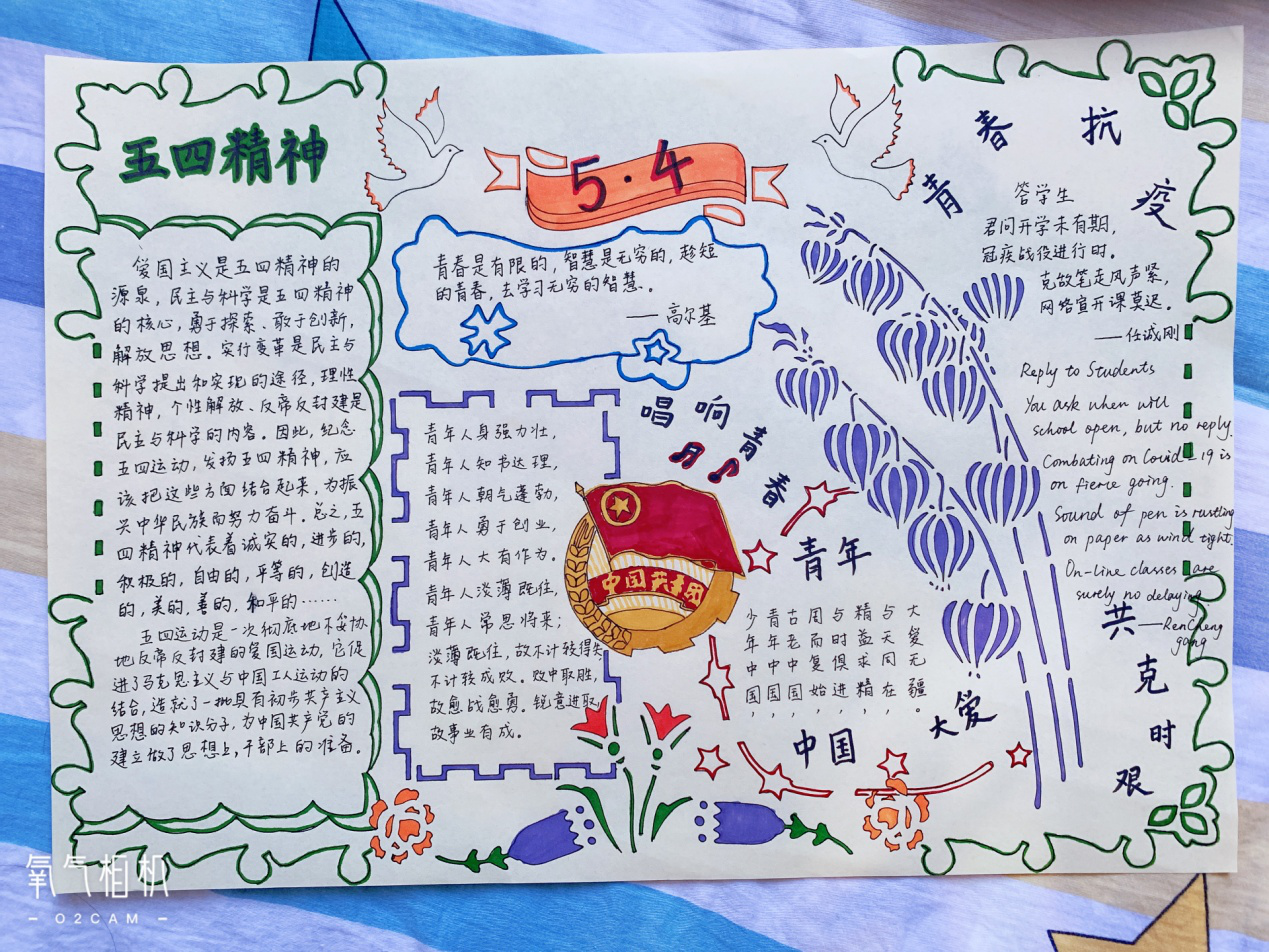 五四精神
爱国主义是五四精神的
源泉，民主与科学是五四精神
的核心，勇于探索、敢于创新，
解放思想。实行变革是民主与
科学提出和实现的途径，理性
精神，个性解放、反帝反封建是
民主与科学的内容。因此，纪念
五四运动，发扬五四精神，应
该把这些方面结合起来，为振
兴中华民族而努力奋斗。总之，五
四精神代表着诚实的，进步的，
积极的，自由的，平等的，创造
的，美的，善的，和平的……
五四运动是一次彻底地不妥协
地反帝反封建的爱国运动，它促
进了马克思主义与中国工人运动的
结合，造就了一批具有初步共产主义
思想的知识分子，为中国共产党的
建立做了思想上，干部上的准备。
5·4
青春是有限的，智慧是无穷的，趁短
的青春，去学习无穷的智慧、。
——高尔基
青年人身强力壮，
青年人知书达理，
青年人朝气蓬勃，
青年人勇于创业，
青年人大有作为。
青年人淡薄既往，
青年人常思将来；
淡薄既往，故不计较得失
不计较成败。败中取胜，
故愈战愈勇。锐意进取，
故事业有成。
唱响青春
中国共青团
青年
少青古周与精与大
年年老而时益天爱
中中中复俱求同无
国国国始进精在疆
，，，，，，，。
中国
大爱
青春抗疫
答学生
君问开学未有期，
冠疾战役进行时。
克敌笔走风声紧，
网络宣开课莫迟。
——任诚刚
Reply to Students
You ask when will
school open, but no reply.
Combating on Covid-19 is
on fierce going.
Sound of pen is rustling
on paper as wind tight.
On-line classes are
surely no delaying.
——RenCheng
gang
共克时艰
氧气相机
- O2CAM -